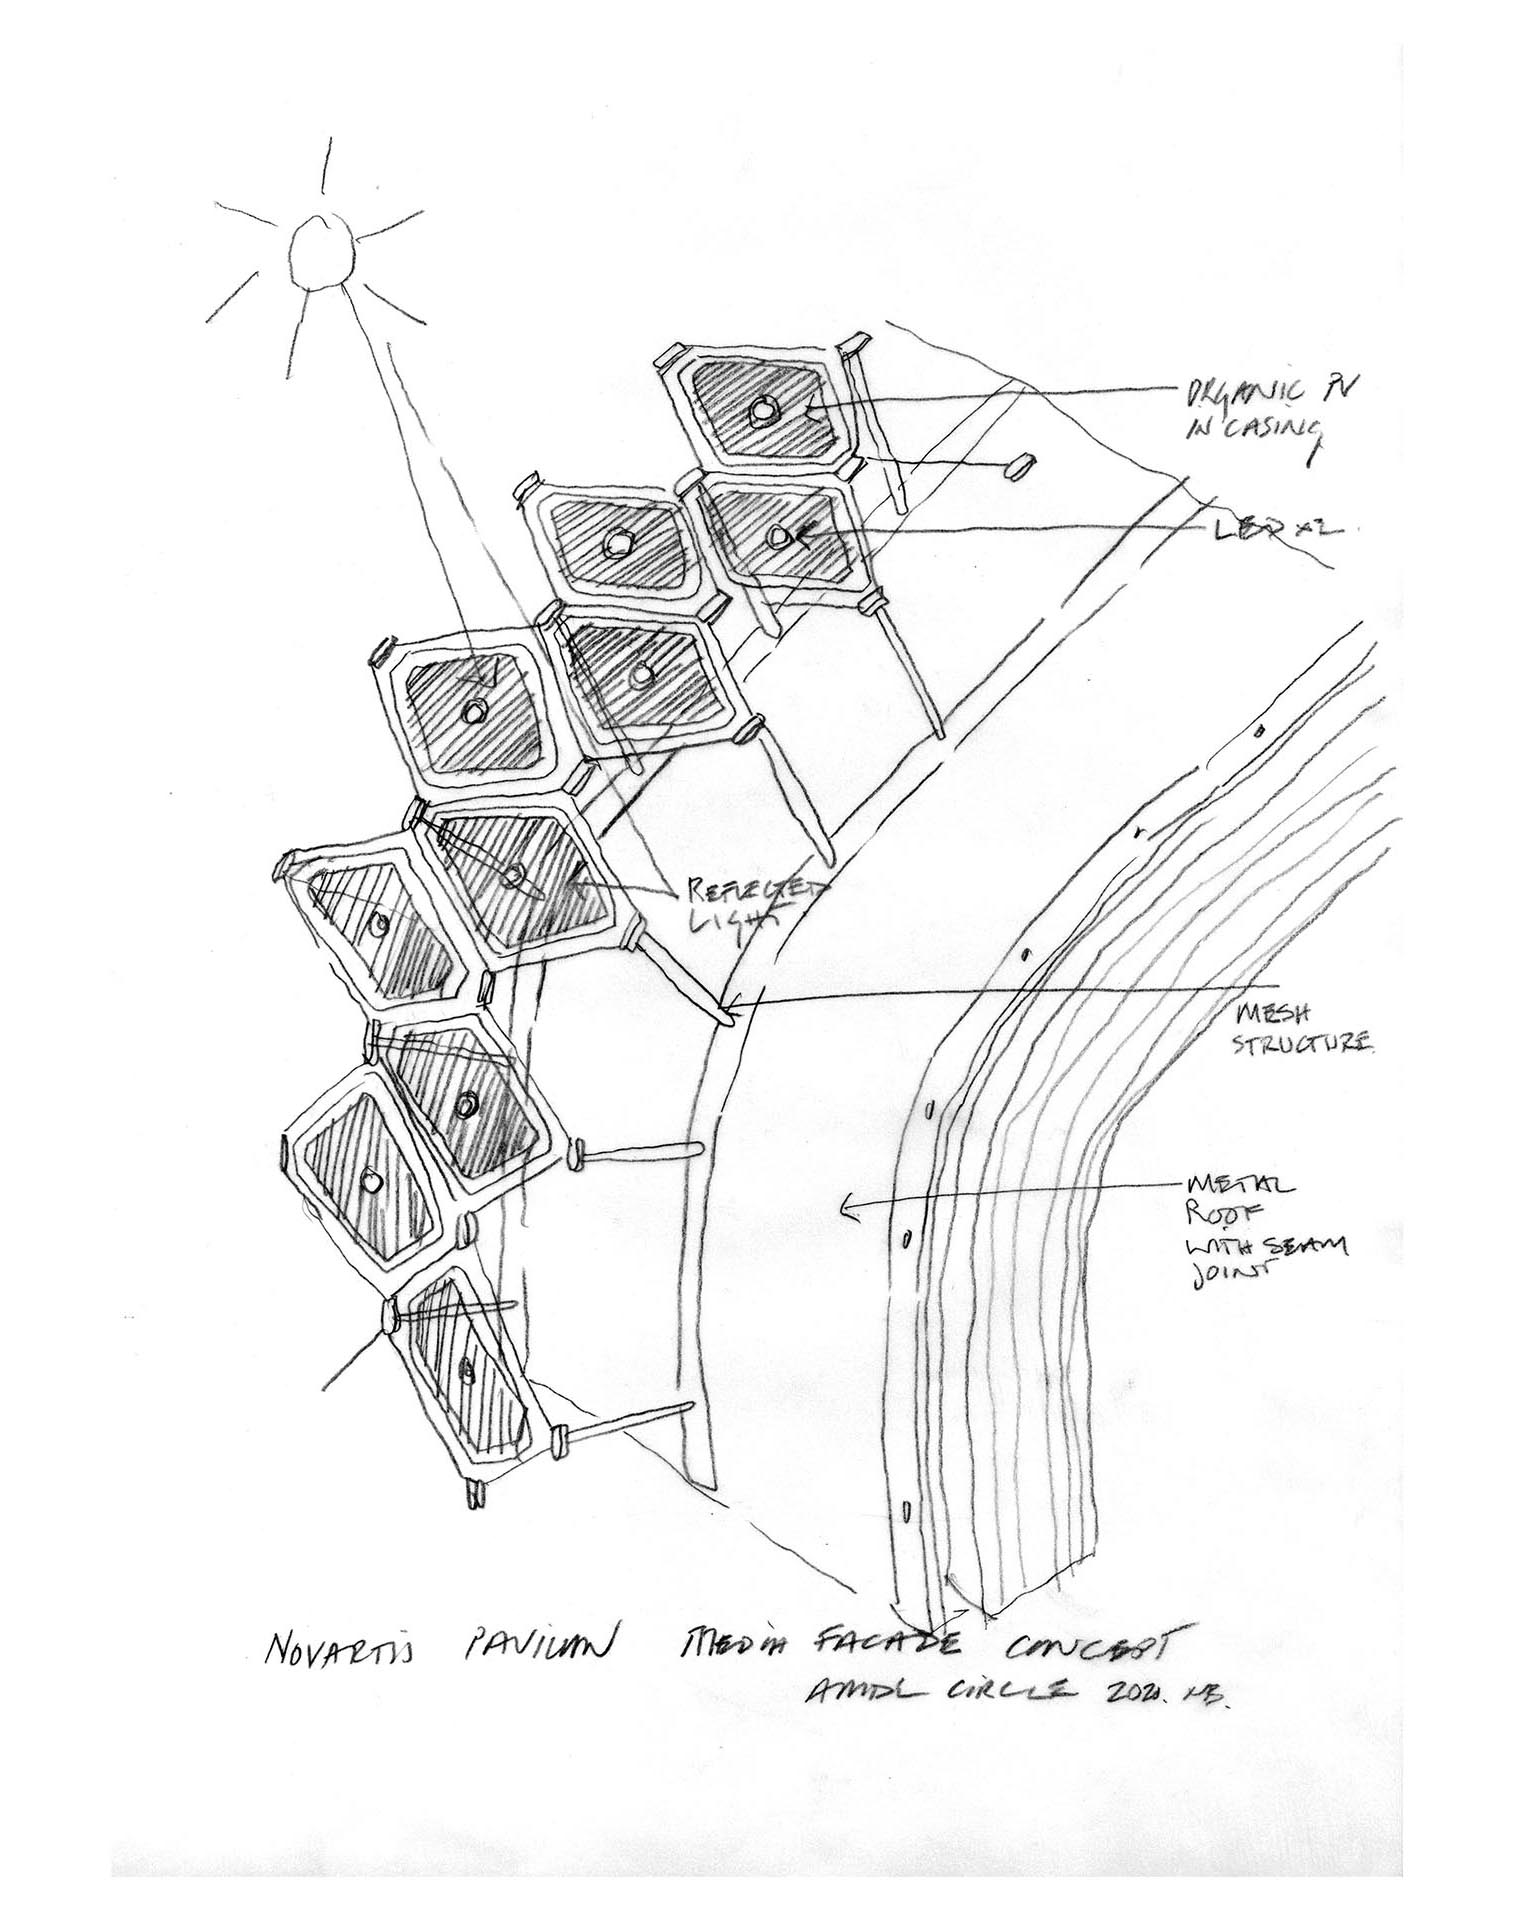 ORGANIC PV
IN CASING
LED x2
REFLECTED
LIGHT
MESH
STRUCTURE
METAL
ROOF
WITH SEAM
JOINT
NOVARTIS PAVILION MEDIA FACADE CONCEPT
AMDL CIRCLE